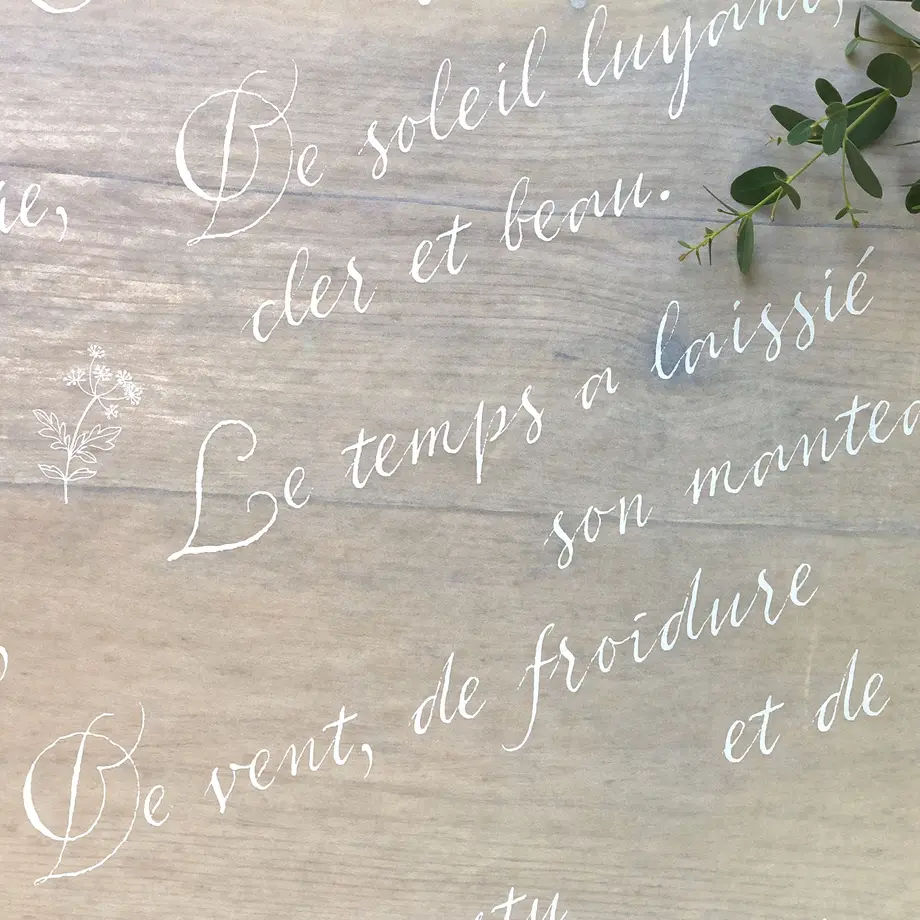 De soleil luyant,
cler et beau.
Le temps a laissié
son mantea
De vent, de froidure
et de